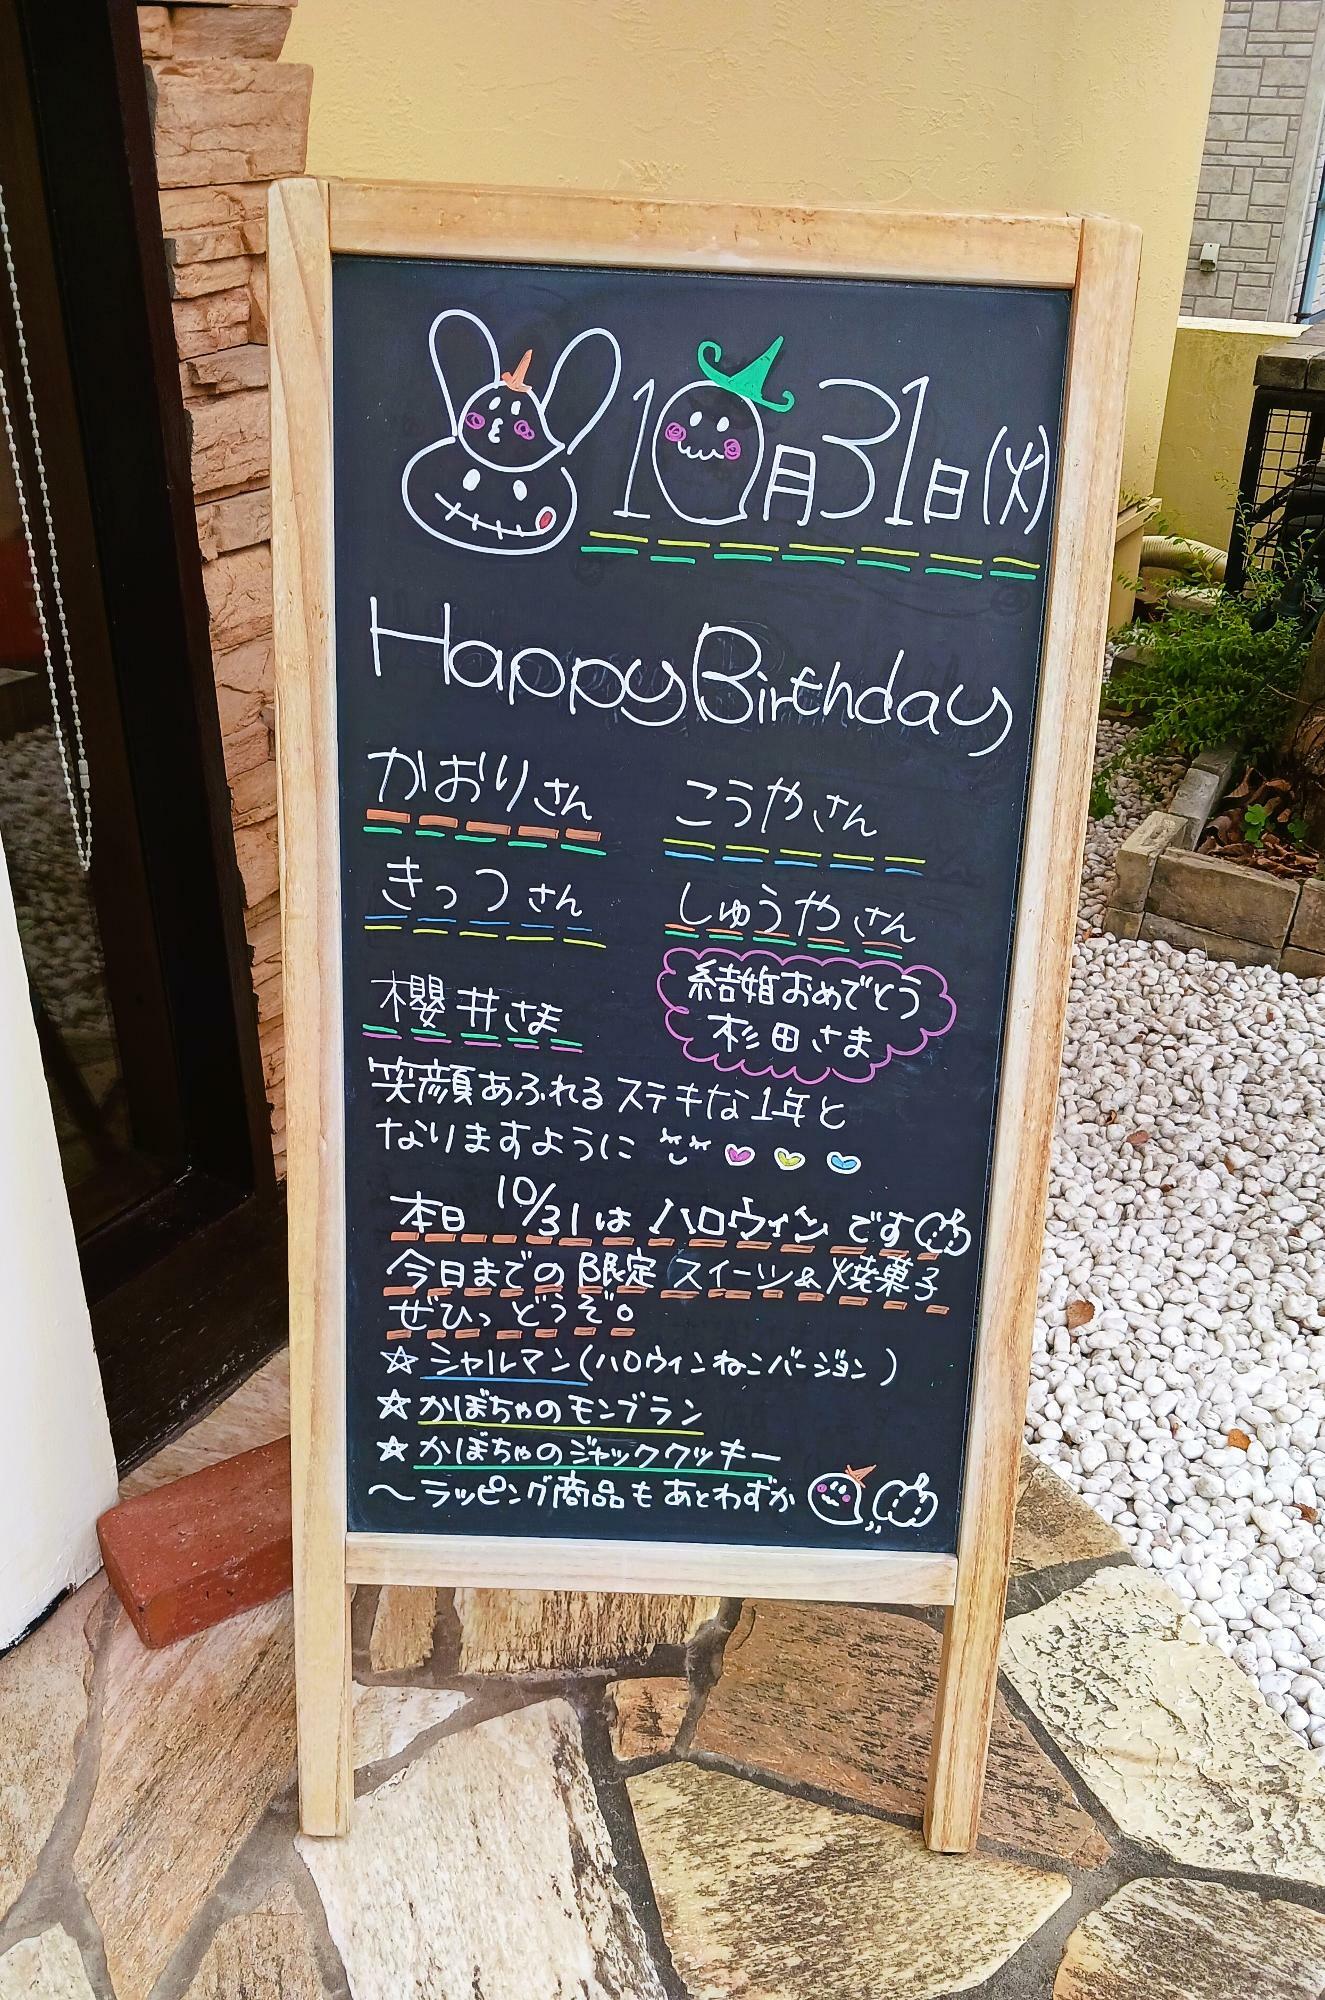 10月31日(火)
Happy Birthday
かおりさん こうやさん
きっつさん しゅうやさん
櫻井さま
結婚おめでとう
杉田さま
笑顔あふれるステキな1年と
なりますように
本日 10/31はハロウィンです
今日までの限定スイーツ&焼菓子
ぜひっどうぞ。
☆シャルマン(ハロウィンねこバージョン)
☆かぼちゃのモンブラン
☆かぼちゃのジャッククッキー
〜ラッピング商品もあとわずか